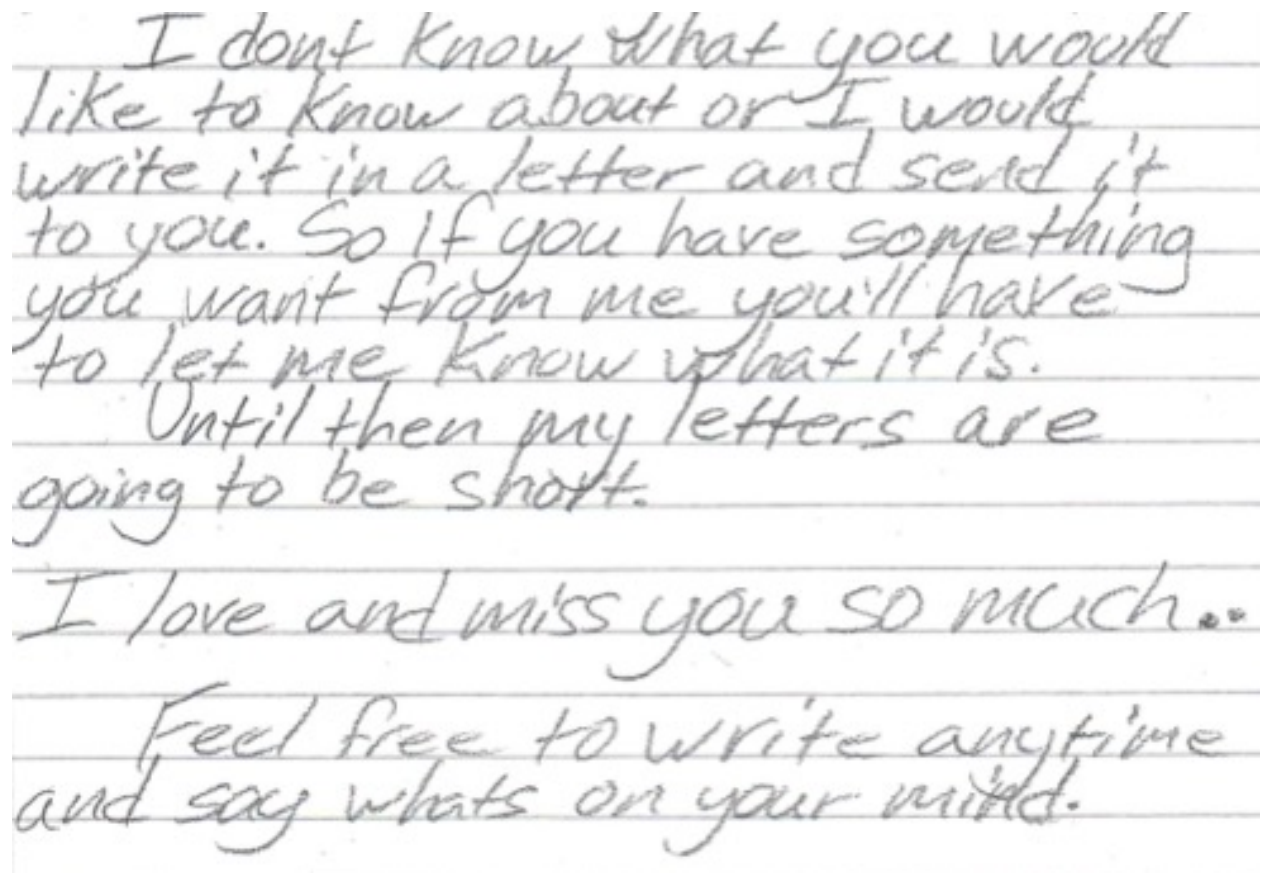 I dont know what you would
like to know about or I would
write it in a letter and send it
to you. So if you have something
you want from me you'll have
to let me know what it is.
Until then my letters are
going to be short.
I love and miss you so much..
Feel free to write anytime
and say whats on your mind.